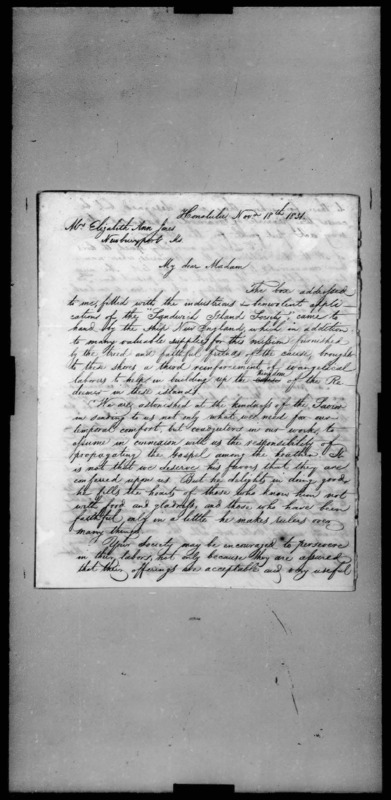 Honolulu Nov. 18th 1831.
Mrs Elizabeth Ann
Newburyport Ms
My dear Madam
The box addressed
to me, filled with the industrious & benevolent appli
cations of the "Sandwich Island Society", came to
hand by the ship New England, which in addition
to many valuable supplies for this mission furnished
by the tried and faithful friends of the cause, brought
to these shores a third reinforcement of evangelical
laborers to help in building up the kingdom of the Re
deemer in these islands.
We are astonished at the kindness of the Savior
in sending to us not only what we need for our
temporal comfort, but coadjutors in our work, to
assume in connexion with us the responsibility of
propagating the Gospel among the heathen. It
is not that we deserve his favors that they are
conferred upon us. But he delights in doing good,
he fills the hearts of those who know him not
with food and gladness, and those who have been
faithful only in a little he makes rulers over
many things.
Your Society may be encouraged to persevere
in their labors, not only because they are assured
that their offerings are acceptable and very useful